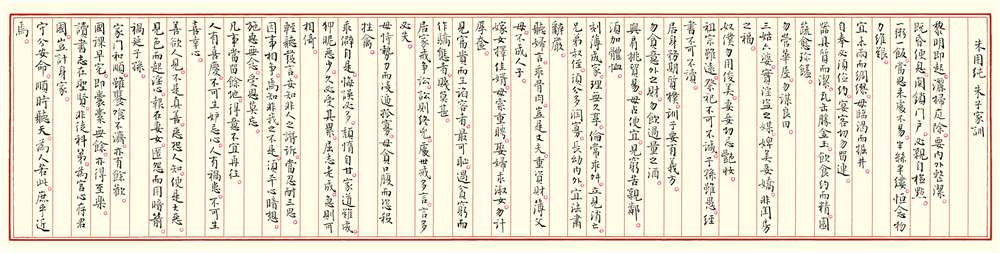 朱用純 朱子家訓
黎明即起。灑掃庭除。要內外整潔。
既昏便息。關鎖門戶。必親自檢點。
一粥一飯。當思來處不易。半絲半縷。恒念物
力維艱。
宜未雨而綢繆。毋臨渴而掘井。
自奉必須儉約。宴客切勿留連。
器具質而潔。瓦缶勝金玉。飲食約而精。園
蔬愈珍饈。
勿營華屋。勿謀良田。
三姑六婆。實淫盜之媒。婢美妾嬌。非閨房
之福。
奴僕勿用俊美。妻妾切忌艷妝。
祖宗雖遠。祭祀不可不誠。子孫雖愚。經
書不可不讀。
居身務期質樸。訓子要有義方。
勿貪意外之財。勿飲過量之酒。
與肩挑貿易。毋占便宜。見窮苦親鄰。
須加體恤。
刻薄成家。理無久享。倫常乖舛。立見消亡。
兄弟叔侄。須分多潤寡。長幼內外。宜法肅
辭嚴。
聽婦言。乖骨肉。豈是丈夫。重資財。薄父
母。不成人子。
嫁女擇佳婿。毋索重聘。娶媳求淑女。勿計
厚奩。
見富貴而生諂容者。最可恥。遇貧窮而
作驕態者。賤莫甚。
居家戒爭訟。訟則終凶。處世戒多言。言多
必失。
毋恃勢力而凌逼孤寡。毋貪口腹而恣殺
牲禽。
乖僻自是。悔誤必多。頹惰自甘。家道難成。
狎昵惡少。久必受其累。屈志老成。急則可
相倚。
輕聽發言。安知非人之譖訴。當忍耐三思。
因事相爭。焉知非我之不是。須平心暗想。
施惠毋念。受恩莫忘。
凡事當留餘地。得意不宜再往。
人有喜慶。不可生妒忌心。人有禍患。不可生
喜幸心。
善欲人見。不是真善。惡恐人知。便是大惡。
見色而起淫心。報在妻女。匿怨而用暗箭。
禍延子孫。
家門和順。雖饔飧不濟。亦有餘歡。
國課早完。即囊橐無餘。亦得至樂。
讀書志在聖賢。非徒科第。為官心存君
國。豈計身家。
守分安命。順時聽天。為人若此。庶乎近
焉。